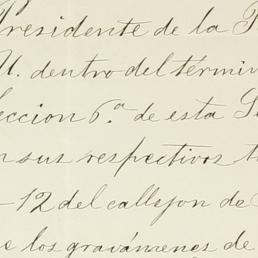 Presidente de la
U. dentro del términ
eccion 6.ª de esta Se
n sus respectivos t
-12 del callejon de
e los gravámenes de